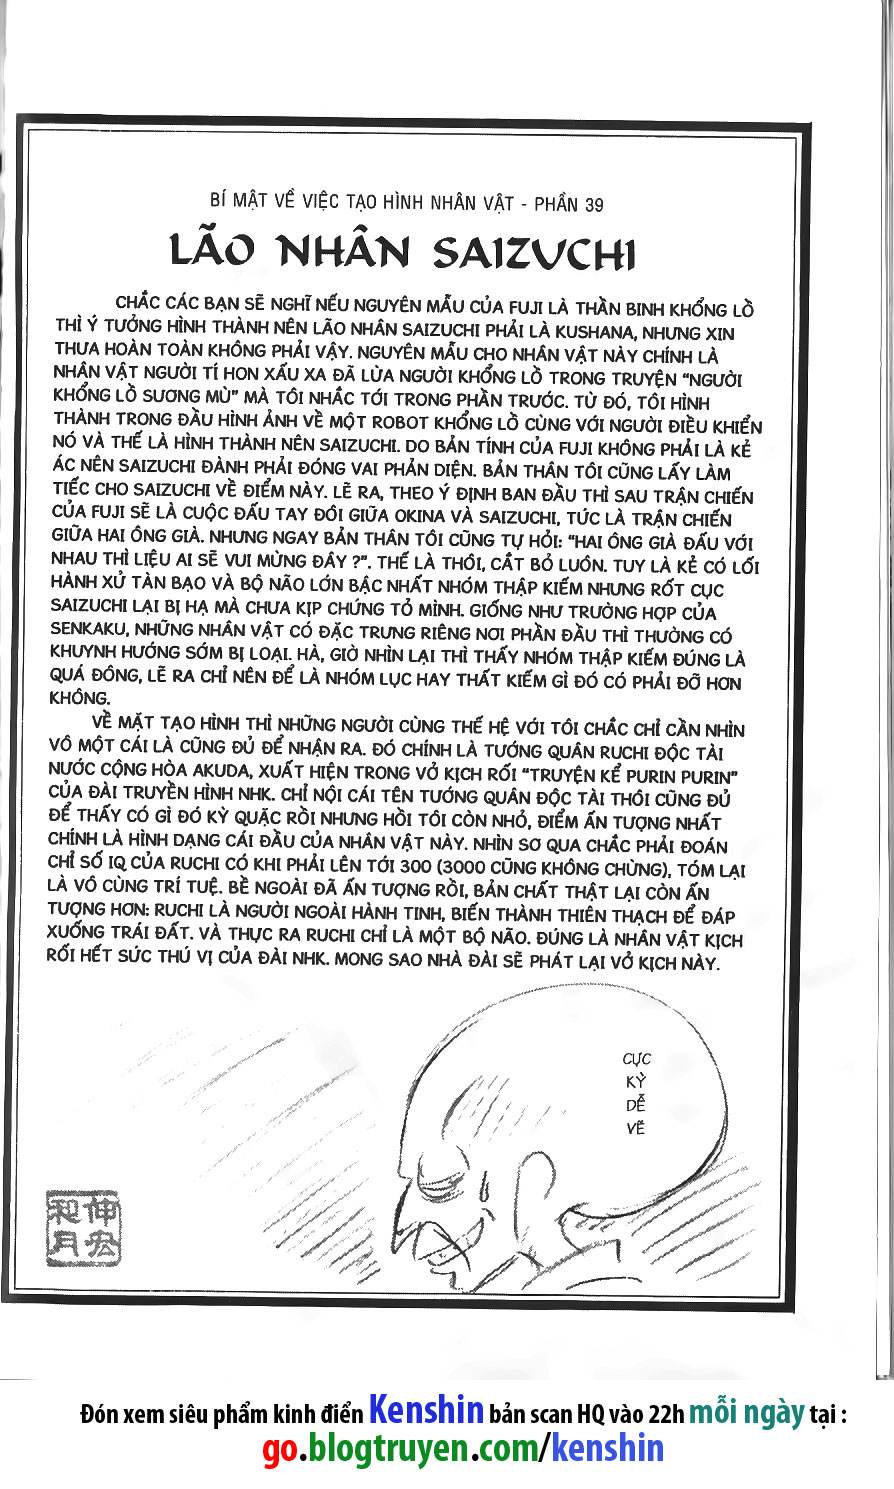 BÍ MẬT VỀ VIỆC TẠO HÌNH NHÂN VẬT - PHẦN 39
LÃO NHÂN SAIZUCHI
CHẮC CÁC BẠN SẼ NGHĨ NẾU NGUYÊN MẪU CỦA FUJI LÀ THẦN BINH KHỔNG LỒ
THÌ Ý TƯỞNG HÌNH THÀNH NÊN LÃO NHÂN SAIZUCHI PHẢI LÀ KUSHANA, NHƯNG XIN
THƯA HOÀN TOÀN KHÔNG PHẢI VẬY. NGUYÊN MẪU CHO NHÂN VẬT NÀY CHÍNH LÀ
NHÂN VẬT NGƯỜI TÍ HON XẤU XA ĐÃ LỪA NGƯỜI KHỔNG LỒ TRONG TRUYỆN "NGƯỜI
KHỔNG LỒ SƯƠNG MÙ" MÀ TÔI NHẮC TỚI TRONG PHẦN TRƯỚC. TỪ ĐÓ, TÔI HÌNH
THÀNH TRONG ĐẦU HÌNH ẢNH VỀ MỘT ROBOT KHỔNG LỒ CÙNG VỚI NGƯỜI ĐIỀU KHIỂN
NÓ VÀ THẾ LÀ HÌNH THÀNH NÊN SAIZUCHI. DO BẢN TÍNH CỦA FUJI KHÔNG PHẢI LÀ KẺ
ÁC NÊN SAIZUCHI ĐÀNH PHẢI ĐÓNG VAI PHẢN DIỆN. BẢN THÂN TÔI CŨNG LẤY LÀM
TIẾC CHO SAIZUCHI VỀ ĐIỂM NÀY. LẼ RA, THEO Ý ĐỊNH BAN ĐẦU THÌ SAU TRẬN CHIẾN
CỦA FUJI SẼ LÀ CUỘC ĐẤU TAY ĐÔI GIỮA OKINA VÀ SAIZUCHI, TỨC LÀ TRẬN CHIẾN
GIỮA HAI ÔNG GIÀ. NHƯNG NGAY BẢN THÂN TÔI CŨNG TỰ HỎI: "HAI ÔNG GIÀ ĐẤU VỚI
NHAU THÌ LIỆU AI SẼ VUI MỪNG ĐÂY ?". THẾ LÀ THÔI, CẮT BỎ LUÔN. TUY LÀ KẺ CÓ LỐI
HÀNH XỬ TÀN BẠO VÀ BỘ NÃO LỚN BẬC NHẤT NHÓM THẬP KIẾM NHƯNG RỐT CỤC
SAIZUCHI LẠI BỊ HẠ MÀ CHƯA KỊP CHỨNG TỎ MÌNH. GIỐNG NHƯ TRƯỜNG HỢP CỦA
SENKAKU, NHỮNG NHÂN VẬT CÓ ĐẶC TRƯNG RIÊNG NƠI PHẦN ĐẦU THÌ THƯỜNG CÓ
KHUYNH HƯỚNG SỚM BỊ LOẠI. HÀ, GIỜ NHÌN LẠI THÌ THẤY NHÓM THẬP KIẾM ĐÚNG LÀ
QUÁ ĐÔNG, LẼ RA CHỈ NÊN ĐỂ LÀ NHÓM LỤC HAY THẤT KIẾM GÌ ĐÓ CÓ PHẢI ĐỠ HƠN
KHÔNG.
VỀ MẶT TẠO HÌNH THÌ NHỮNG NGƯỜI CÙNG THẾ HỆ VỚI TÔI CHẮC CHỈ CẦN NHÌN
VÔ MỘT CÁI LÀ CŨNG ĐỦ ĐỂ NHẬN RA. ĐÓ CHÍNH LÀ TƯỚNG QUÂN RUCHI ĐỘC TÀI
NƯỚC CỘNG HÒA AKUDA, XUẤT HIỆN TRONG VỞ KỊCH RỐI "TRUYỆN KỂ PURIN PURIN"
CỦA ĐÀI TRUYỀN HÌNH NHK. CHỈ NỘI CÁI TÊN TƯỚNG QUÂN ĐỘC TÀI THÔI CŨNG ĐỦ
ĐỂ THẤY CÓ GÌ ĐÓ KỲ QUẶC RỒI NHƯNG HỒI TÔI CÒN NHỎ, ĐIỂM ẤN TƯỢNG NHẤT
CHÍNH LÀ HÌNH DẠNG CÁI ĐẦU CỦA NHÂN VẬT NÀY. NHÌN SƠ QUA CHẮC PHẢI ĐOÁN
CHỈ SỐ IQ CỦA RUCHI CÓ KHI PHẢI LÊN TỚI 300 (3000 CŨNG KHÔNG CHỪNG), TÓM LẠI
LÀ VÔ CÙNG TRÍ TUỆ. BỀ NGOÀI ĐÃ ẤN TƯỢNG RỒI, BẢN CHẤT THẬT LẠI CÒN ẤN
TƯỢNG HƠN: RUCHI LÀ NGƯỜI NGOÀI HÀNH TINH, BIẾN THÀNH THIÊN THẠCH ĐỂ ĐÁP
XUỐNG TRÁI ĐẤT. VÀ THỰC RA RUCHI CHỈ LÀ MỘT BỘ NÃO. ĐÚNG LÀ NHÂN VẬT KỊCH
RỐI HẾT SỨC THÚ VỊ CỦA ĐÀI NHK. MONG SAO NHÀ ĐÀI SẼ PHÁT LẠI VỞ KỊCH NÀY.
CỰC
KỲ
DỄ
VẼ
和伸
月宏
Đón xem siêu phẩm kinh điển Kenshin bản scan HQ vào 22h mỗi ngày tại :
go.blogtruyen.com/kenshin